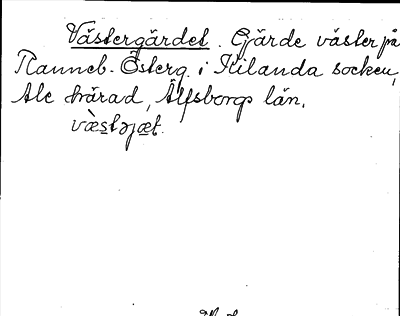 Västergärdet. Gärde väster på
Ranneb. Österg. i Kilanda socken,
Ale härad, Älfsborgs län.
væ̀stəjæt.